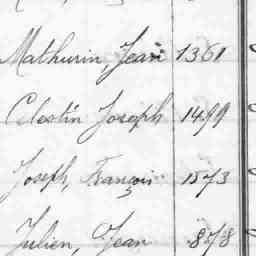 Mathurin, Jean 1361
Célestin Joseph 1499
Joseph, François 1573
Julien, Jean 878